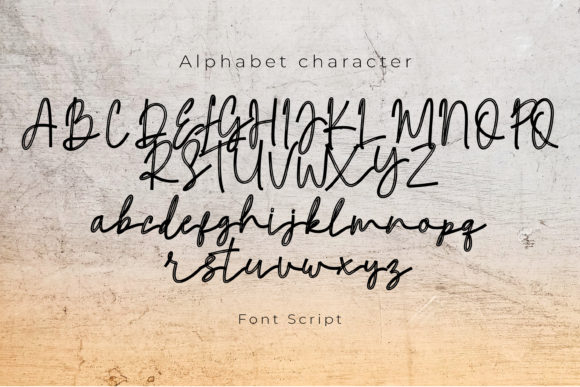 Alphabet character
ABCDEFGHIJKLMNOPQ
RSTUVWXYZ
abcdefghijklmnopq
rstuvwxyz
Font Script